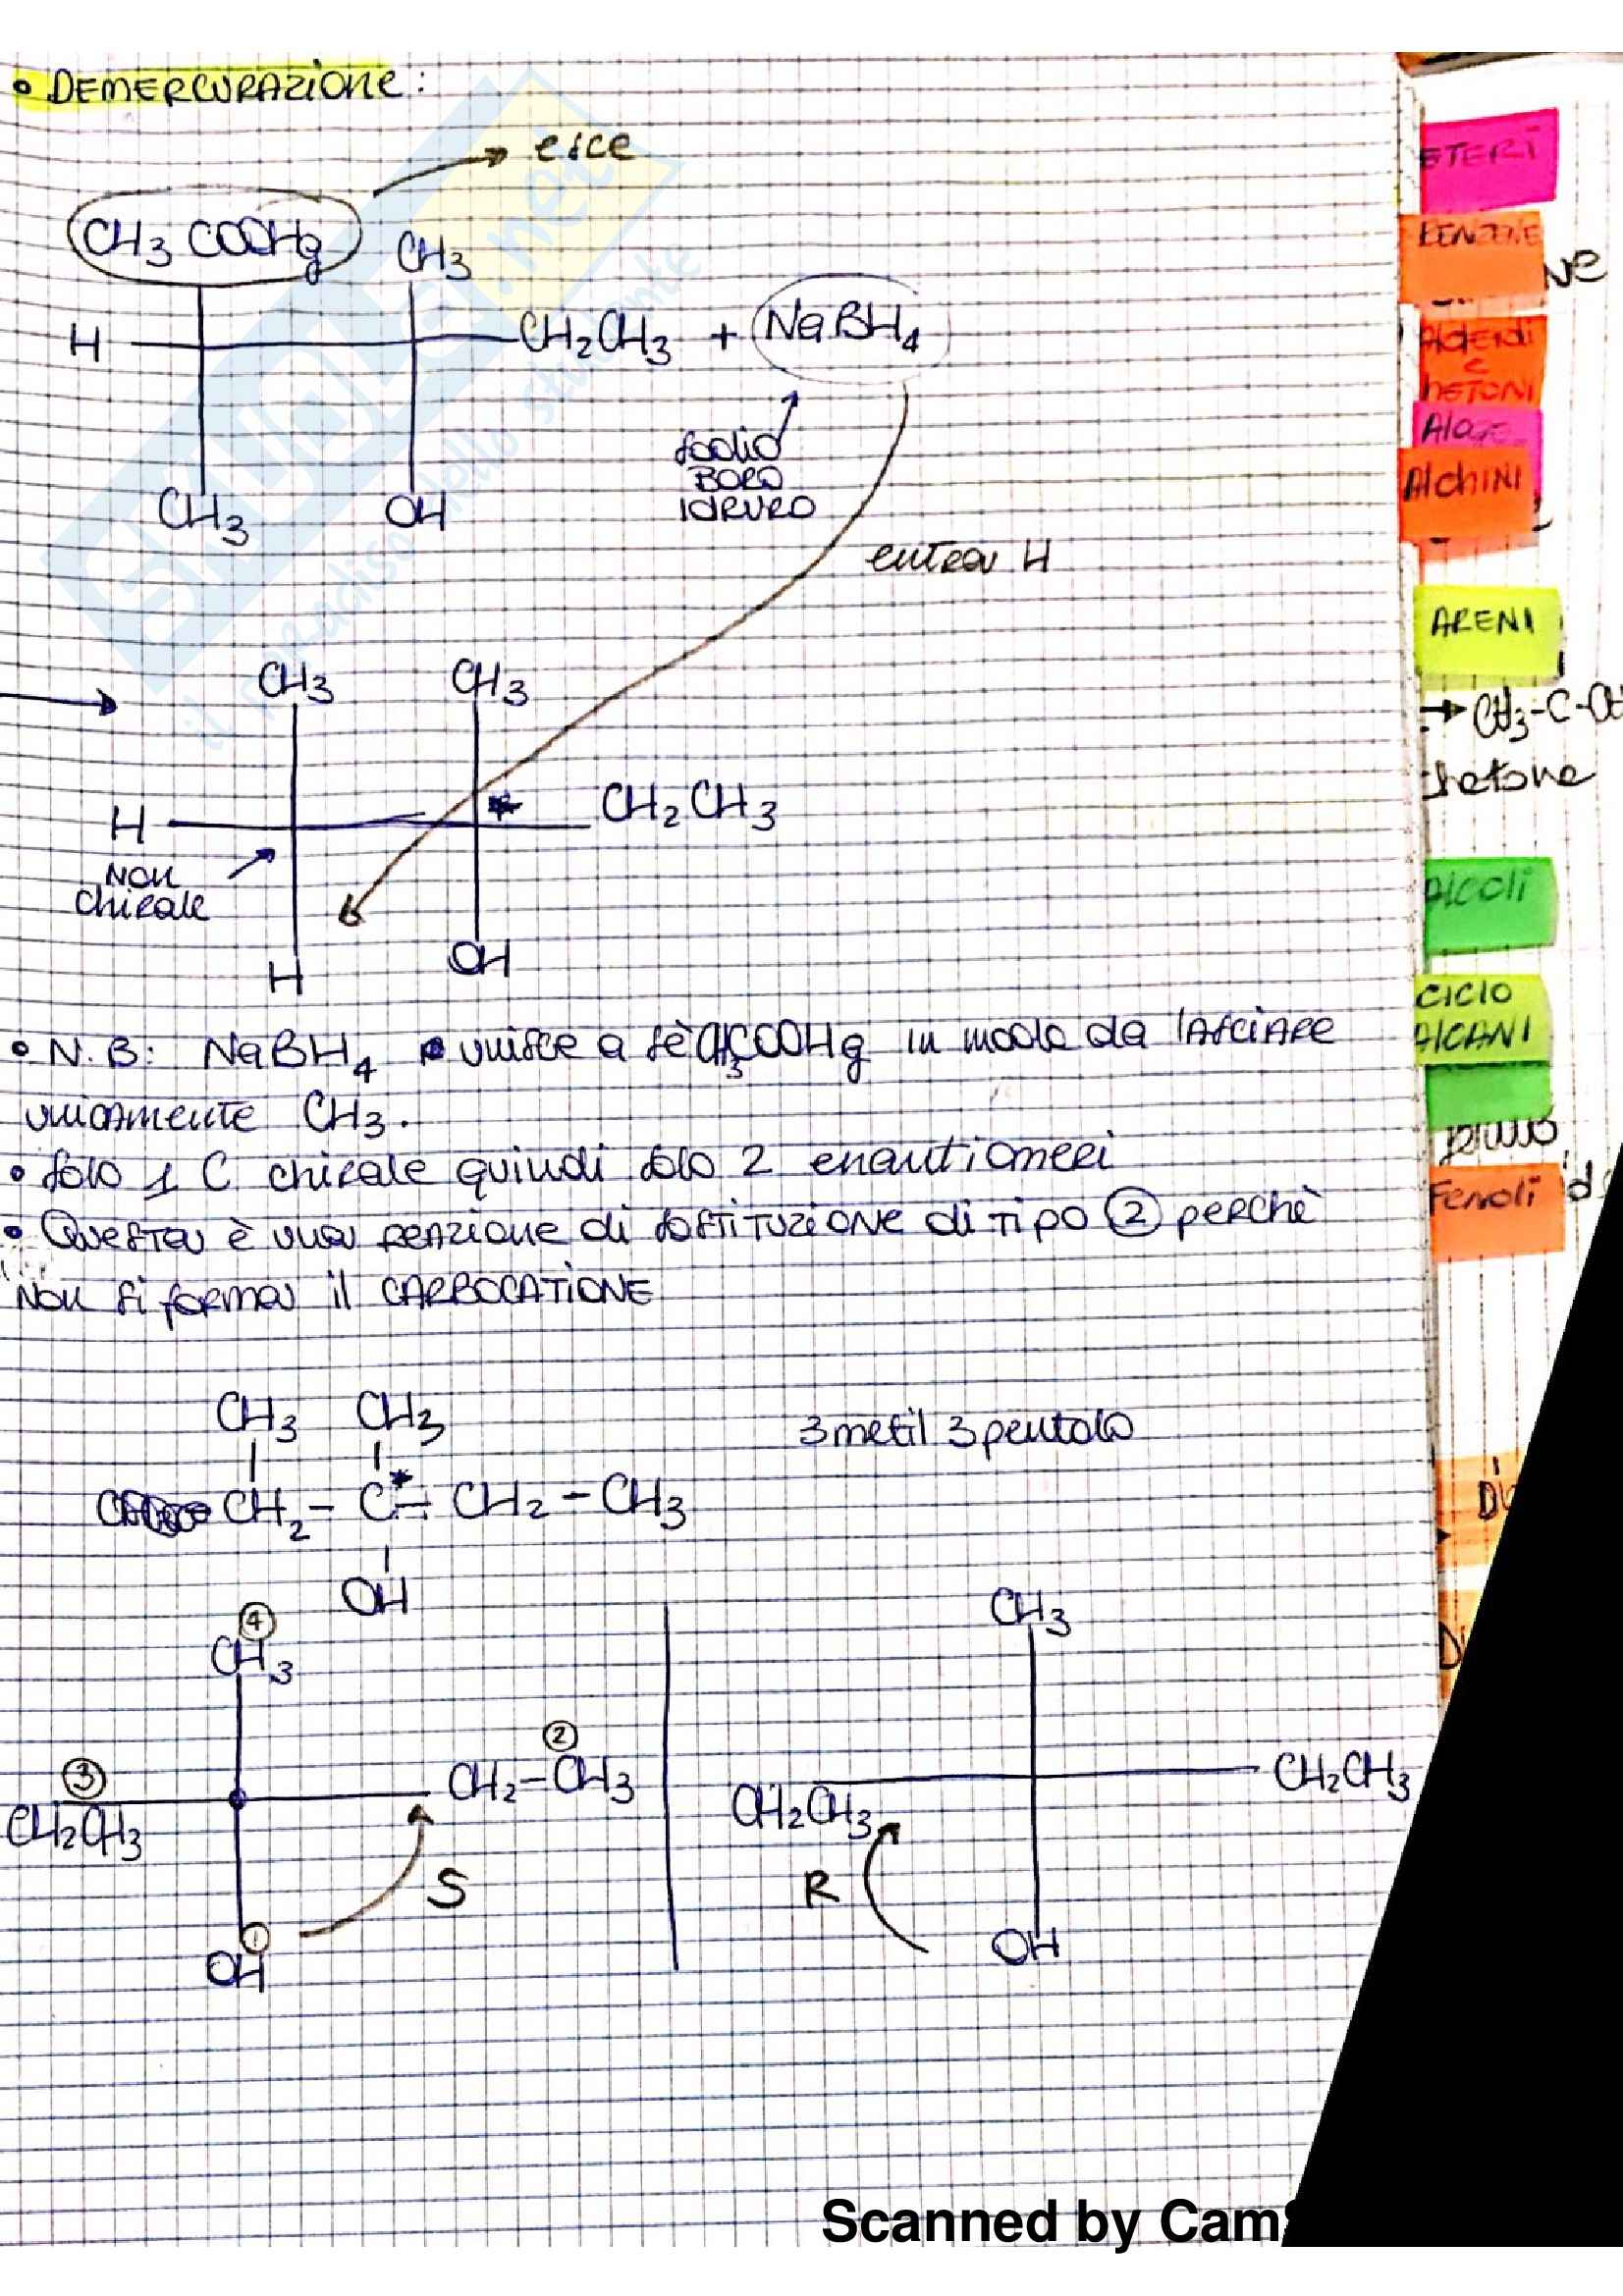 • DEMERCURAZIONE:
esce
CH3 COOHg CH3
H CH2CH3 + NaBH4
CH3 OH
sodio
BORO
IDRURO
entra H
CH3 CH3
H * CH2CH3
NON
chirale
H OH
• N.B: NaBH4 unisce a sè CH3COOHg in modo da lasciare
unicamente CH3.
• solo 1 C chirale quindi solo 2 enantiomeri
• Questa è una reazione di sostituzione di tipo 2 perchè
NON si forma il CARBOCATIONE
CH3 CH3
3 metil 3 pentolo
CH2 - C* - CH2 - CH3
OH
4
CH3
CH3
3
2
CH2CH3
CH2-CH3
CH2CH3
CH2CH3
S
R
1
OH
OH
ETERI
BENZENE
NE
Aldeidi
e
CHETONI
Aloge
AlchINI
ARENI
→ CH3-C-CH
chetone
Alcoli
CICLO
AlCANI
Fenoli
SKUOLA.net
il paradiso dello studente
Scanned by CamS